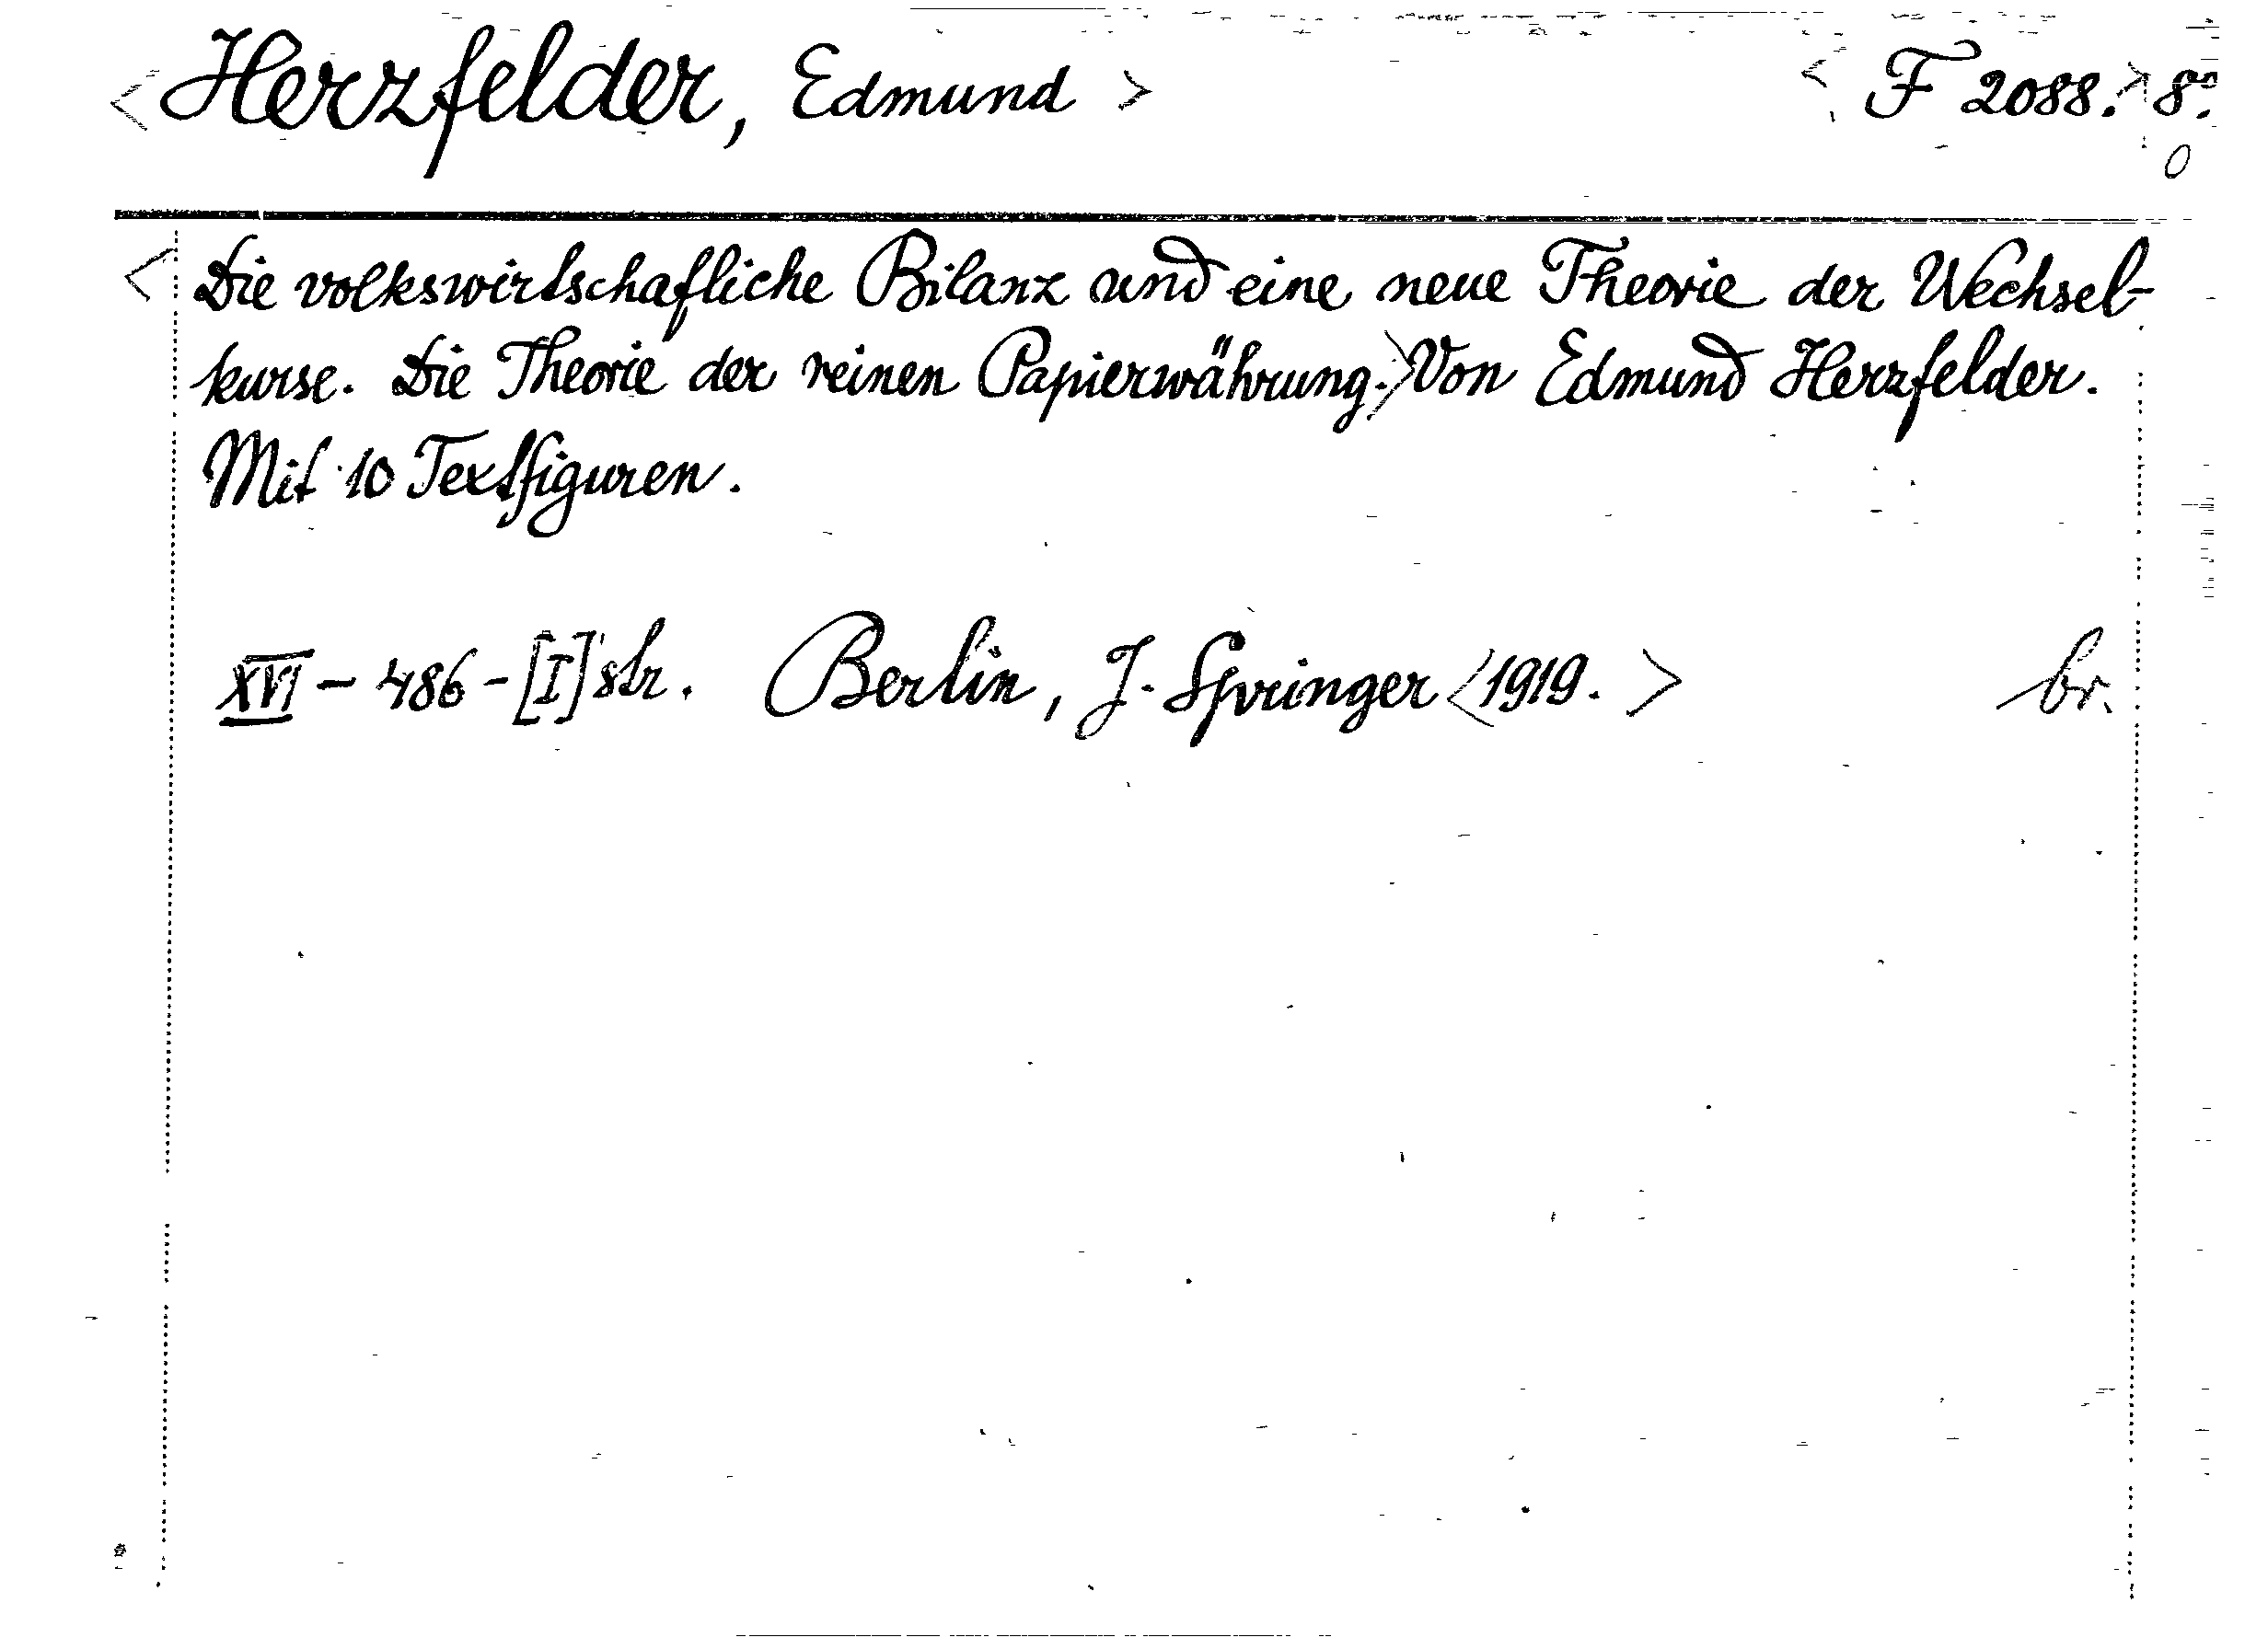 <Herzfelder, Edmund> <F 2088.> 8º.
0
<Die volkswirtschafliche Bilanz und eine neue Theorie der Wechsel-
kurse. Die Theorie der reinen Papierwährung.> Von Edmund Herzfelder.
Mit 10 Textfiguren.
XVI – 486 – [I] str. Berlin, J. Springer <1919.> br.